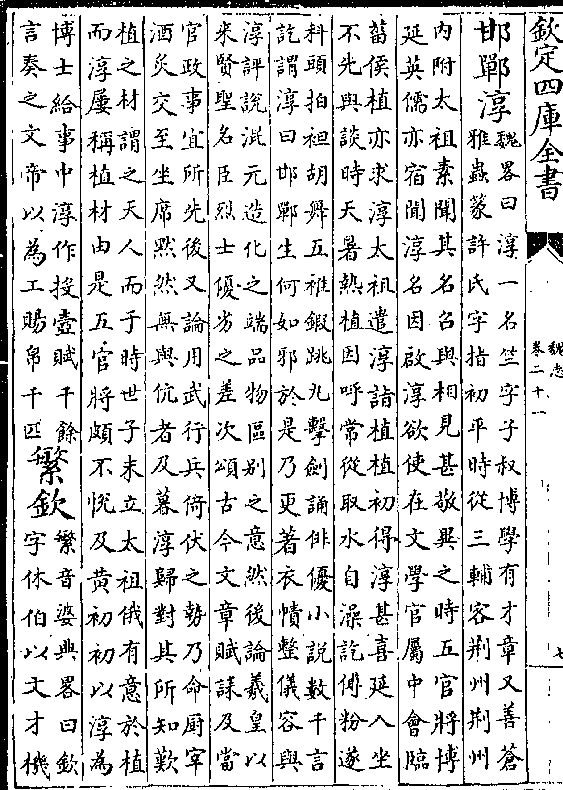 欽定四庫全書
魏志
卷二十一
七
邯鄲淳
魏畧曰淳一名竺字子叔博學有才章又善蒼
雅蟲篆許氏字指初平時從三輔客荆州荆州
內附太祖素聞其名召與相見甚敬異之時五官將博
延英儒亦宿聞淳名因啟淳欲使在文學官屬中會臨
菑侯植亦求淳太祖遣淳詣植植初得淳甚喜延入坐
不先與談時天暑熱植因呼常從取水自澡訖傅粉遂
科頭拍袒胡舞五椎鍛跳丸擊劍誦俳優小説數千言
訖謂淳曰邯鄲生何如邪於是乃更著衣幘整儀容與
淳評説混元造化之端品物區别之意然後論羲皇以
來賢聖名臣烈士優劣之差次頌古今文章賦誄及當
官政事宜所先後又論用武行兵倚伏之勢乃命厨宰
酒炙交至坐席黙然無與伉者及暮淳歸對其所知歎
植之材謂之天人而于時世子未立太祖俄有意於植
而淳屢稱植材由是五官將頗不悅及黄初初以淳為
博士給事中淳作投壺賦千餘
言奏之文帝以為工賜帛千匹
繁欽
繁音婆典畧曰欽
字休伯以文才機